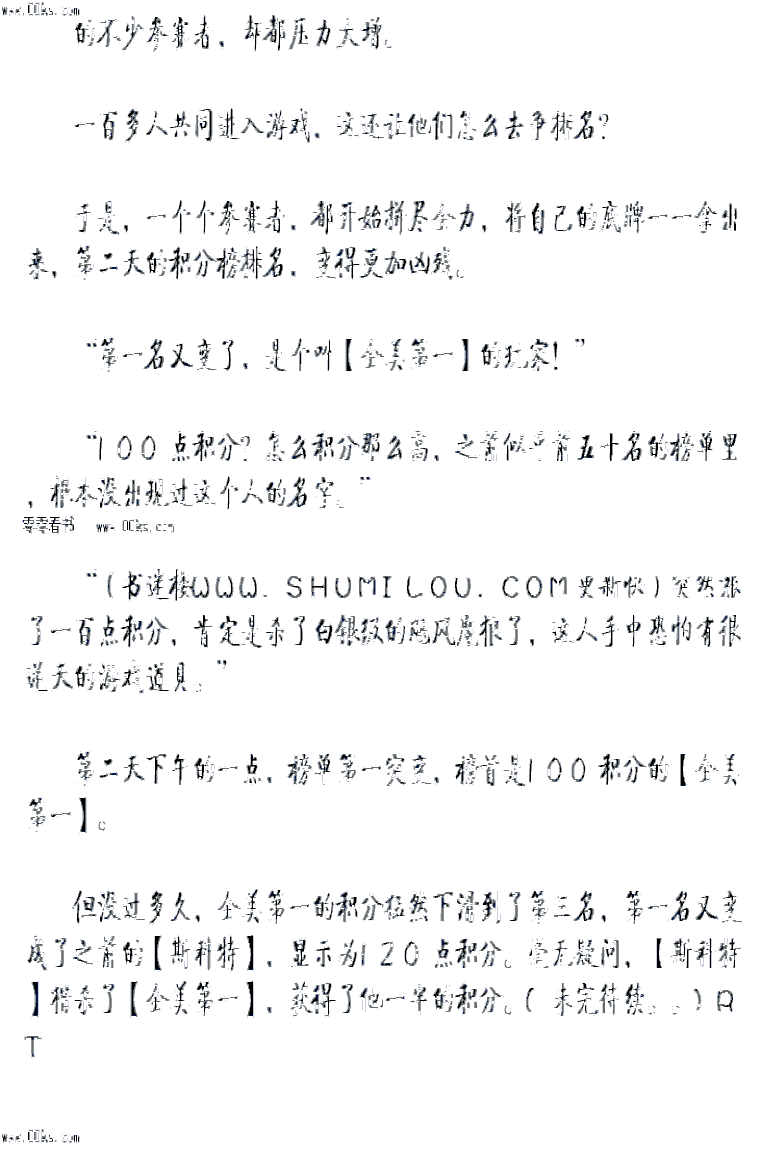 www.00ks.com
的不少参赛者，却都压力大增。
一百多人共同进入游戏，这还让他们怎么去争排名？
于是，一个个参赛者，都开始拼尽全力，将自己的底牌一一拿出
来，第二天的积分榜排名，变得更加凶残。
“第一名又变了，是个叫【全美第一】的玩家！”
“100点积分？怎么积分那么高，之前似乎前五十名的榜单里
，根本没出现过这个人的名字。”
零零看书 www.00ks.com
“（书迷楼WWW.SHUMILOU.COM更新快）突然涨
了一百点积分，肯定是杀了白银级的飓风魔狼了，这人手中恐怕有很
逆天的游戏道具。”
第二天下午的一点，榜单第一突变，榜首是100积分的【全美
第一】。
但没过多久，全美第一的积分猛然下滑到了第三名，第一名又变
成了之前的【斯科特】，显示为120点积分。毫无疑问，【斯科特
】猎杀了【全美第一】，获得了他一半的积分。（未完待续。。）R
T
www.00ks.com